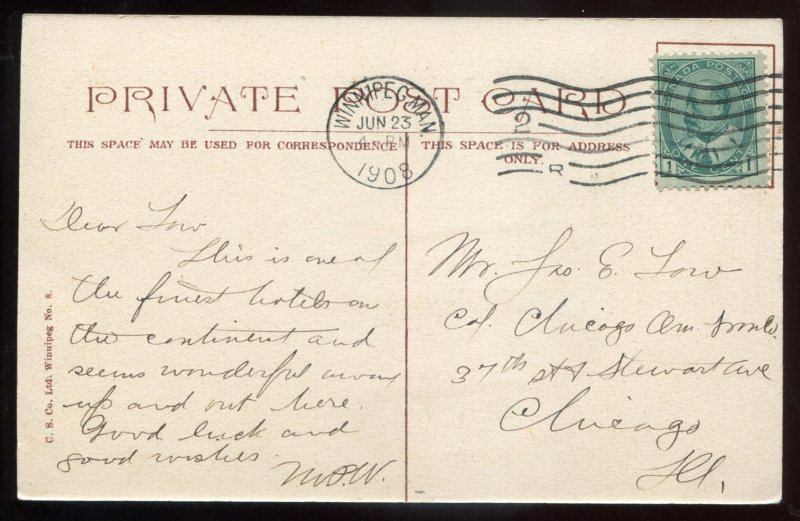 PRIVATE POST CARD
THIS SPACE MAY BE USED FOR CORRESPONDENCE
THIS SPACE IS FOR ADDRESS
ONLY.
WINNIPEG·MAN
JUN 23
PM
1908
R
CANADA POSTAGE
1 ONE CENT 1
Dear Low
This is one of
the finest hotels on
the continent and
seems wonderful away
up and out here.
Good luck and
good wishes
M.P.W.
Mr. Jno E. Low
Chicago Am. Iron Co.
37th St & Stewart Ave
Chicago
Ill.
C. S. Co. Ltd. Winnipeg No. 8.